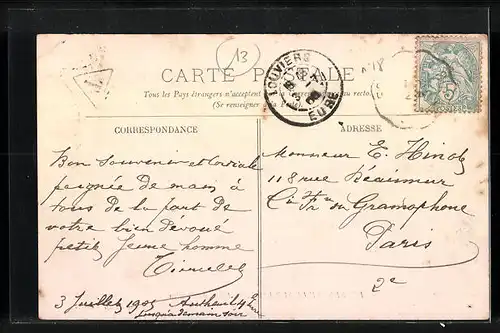 13
CARTE POSTALE
Tous les Pays étrangers n'acceptent pas la Correspondance au recto.
(Se renseigner à la Poste).
LOUVIERS
EURE
5
CORRESPONDANCE
ADRESSE
Bon Souvenir et cordiale
poignée de main à
tous de la part de
votre bien dévoué
petit Jeune homme
3 Juillet 1905
jusqu'à demain soir
Monsieur E. Hinot
118 rue Réaumur
Cie Fr du Gramophone
Paris
2e